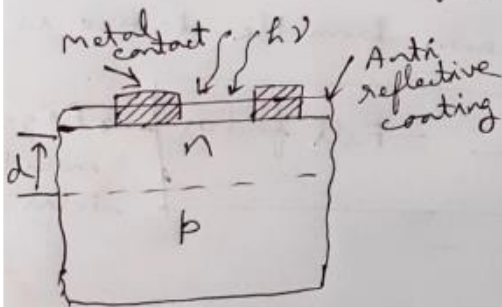 metal
contact
hν
Anti
reflective
coating
n
d
p